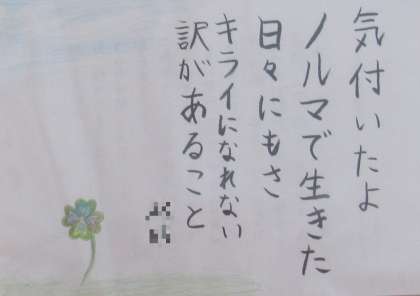 気付いたよ
ノルマで生きた
日々にもさ
キライになれない
訳があること